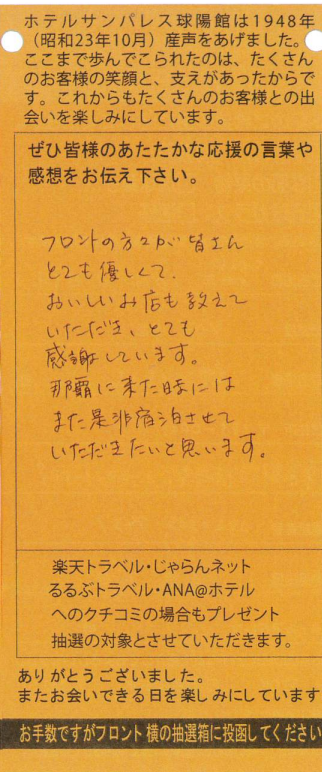 ホテルサンパレス球陽館は1948年
（昭和23年10月）産声をあげました。
ここまで歩んでこられたのは、たくさん
のお客様の笑顔と、支えがあったからで
す。これからもたくさんのお客様との出
会いを楽しみにしています。
ぜひ皆様のあたたかな応援の言葉や
感想をお伝え下さい。
フロントの方々が皆さん
とても優しくて、
おいしいお店も教えて
いただき、とても
感謝しています。
那覇に来た時には
また是非宿泊させて
いただきたいと思います。
楽天トラベル・じゃらんネット
るるぶトラベル・ANA@ホテル
へのクチコミの場合もプレゼント
抽選の対象とさせていただきます。
ありがとうございました。
またお会いできる日を楽しみにしています
お手数ですがフロント横の抽選箱に投函してください